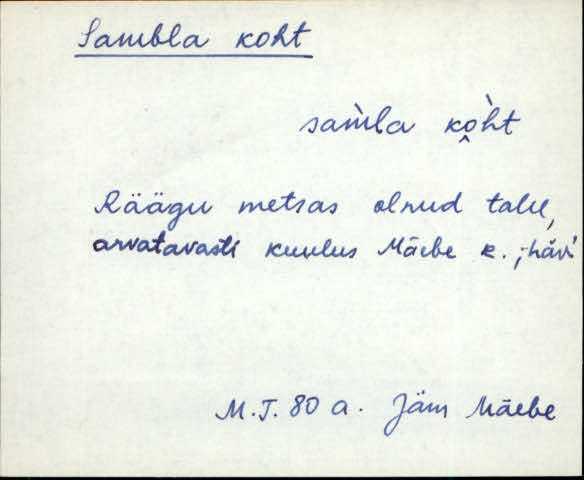 Sambla koht
sam̀la ko̭h̀t
Räägu metsas olnud talu,
arvatavasti kuulus Mäebe k. ; häv.
M.T. 80 a. Jäm Mäebe